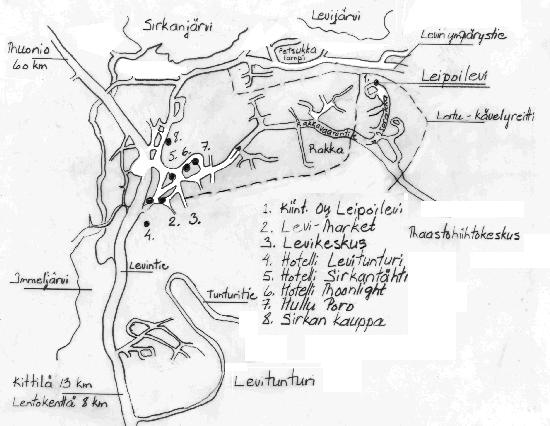 Sirkanjärvi
Levijärvi
Muonio
60 km
Petsukka
lampi
Levin ympärystie
Leipoilevi
Latu-kävelyreitti
1.
8.
5. 6. 7.
Rakka
Maastohiihtokeskus
2. 3.
4.
Levintie
Immeljärvi
Tunturitie
1. Kiint. Oy Leipoilevi
2. Levi-Market
3. Levikeskus
4. Hotelli Levitunturi
5. Hotelli Sirkantähti
6. Hotelli Moonlight
7. Hullu Poro
8. Sirkan kauppa
Levitunturi
Kittilä 13 km
Lentokenttä 8 km